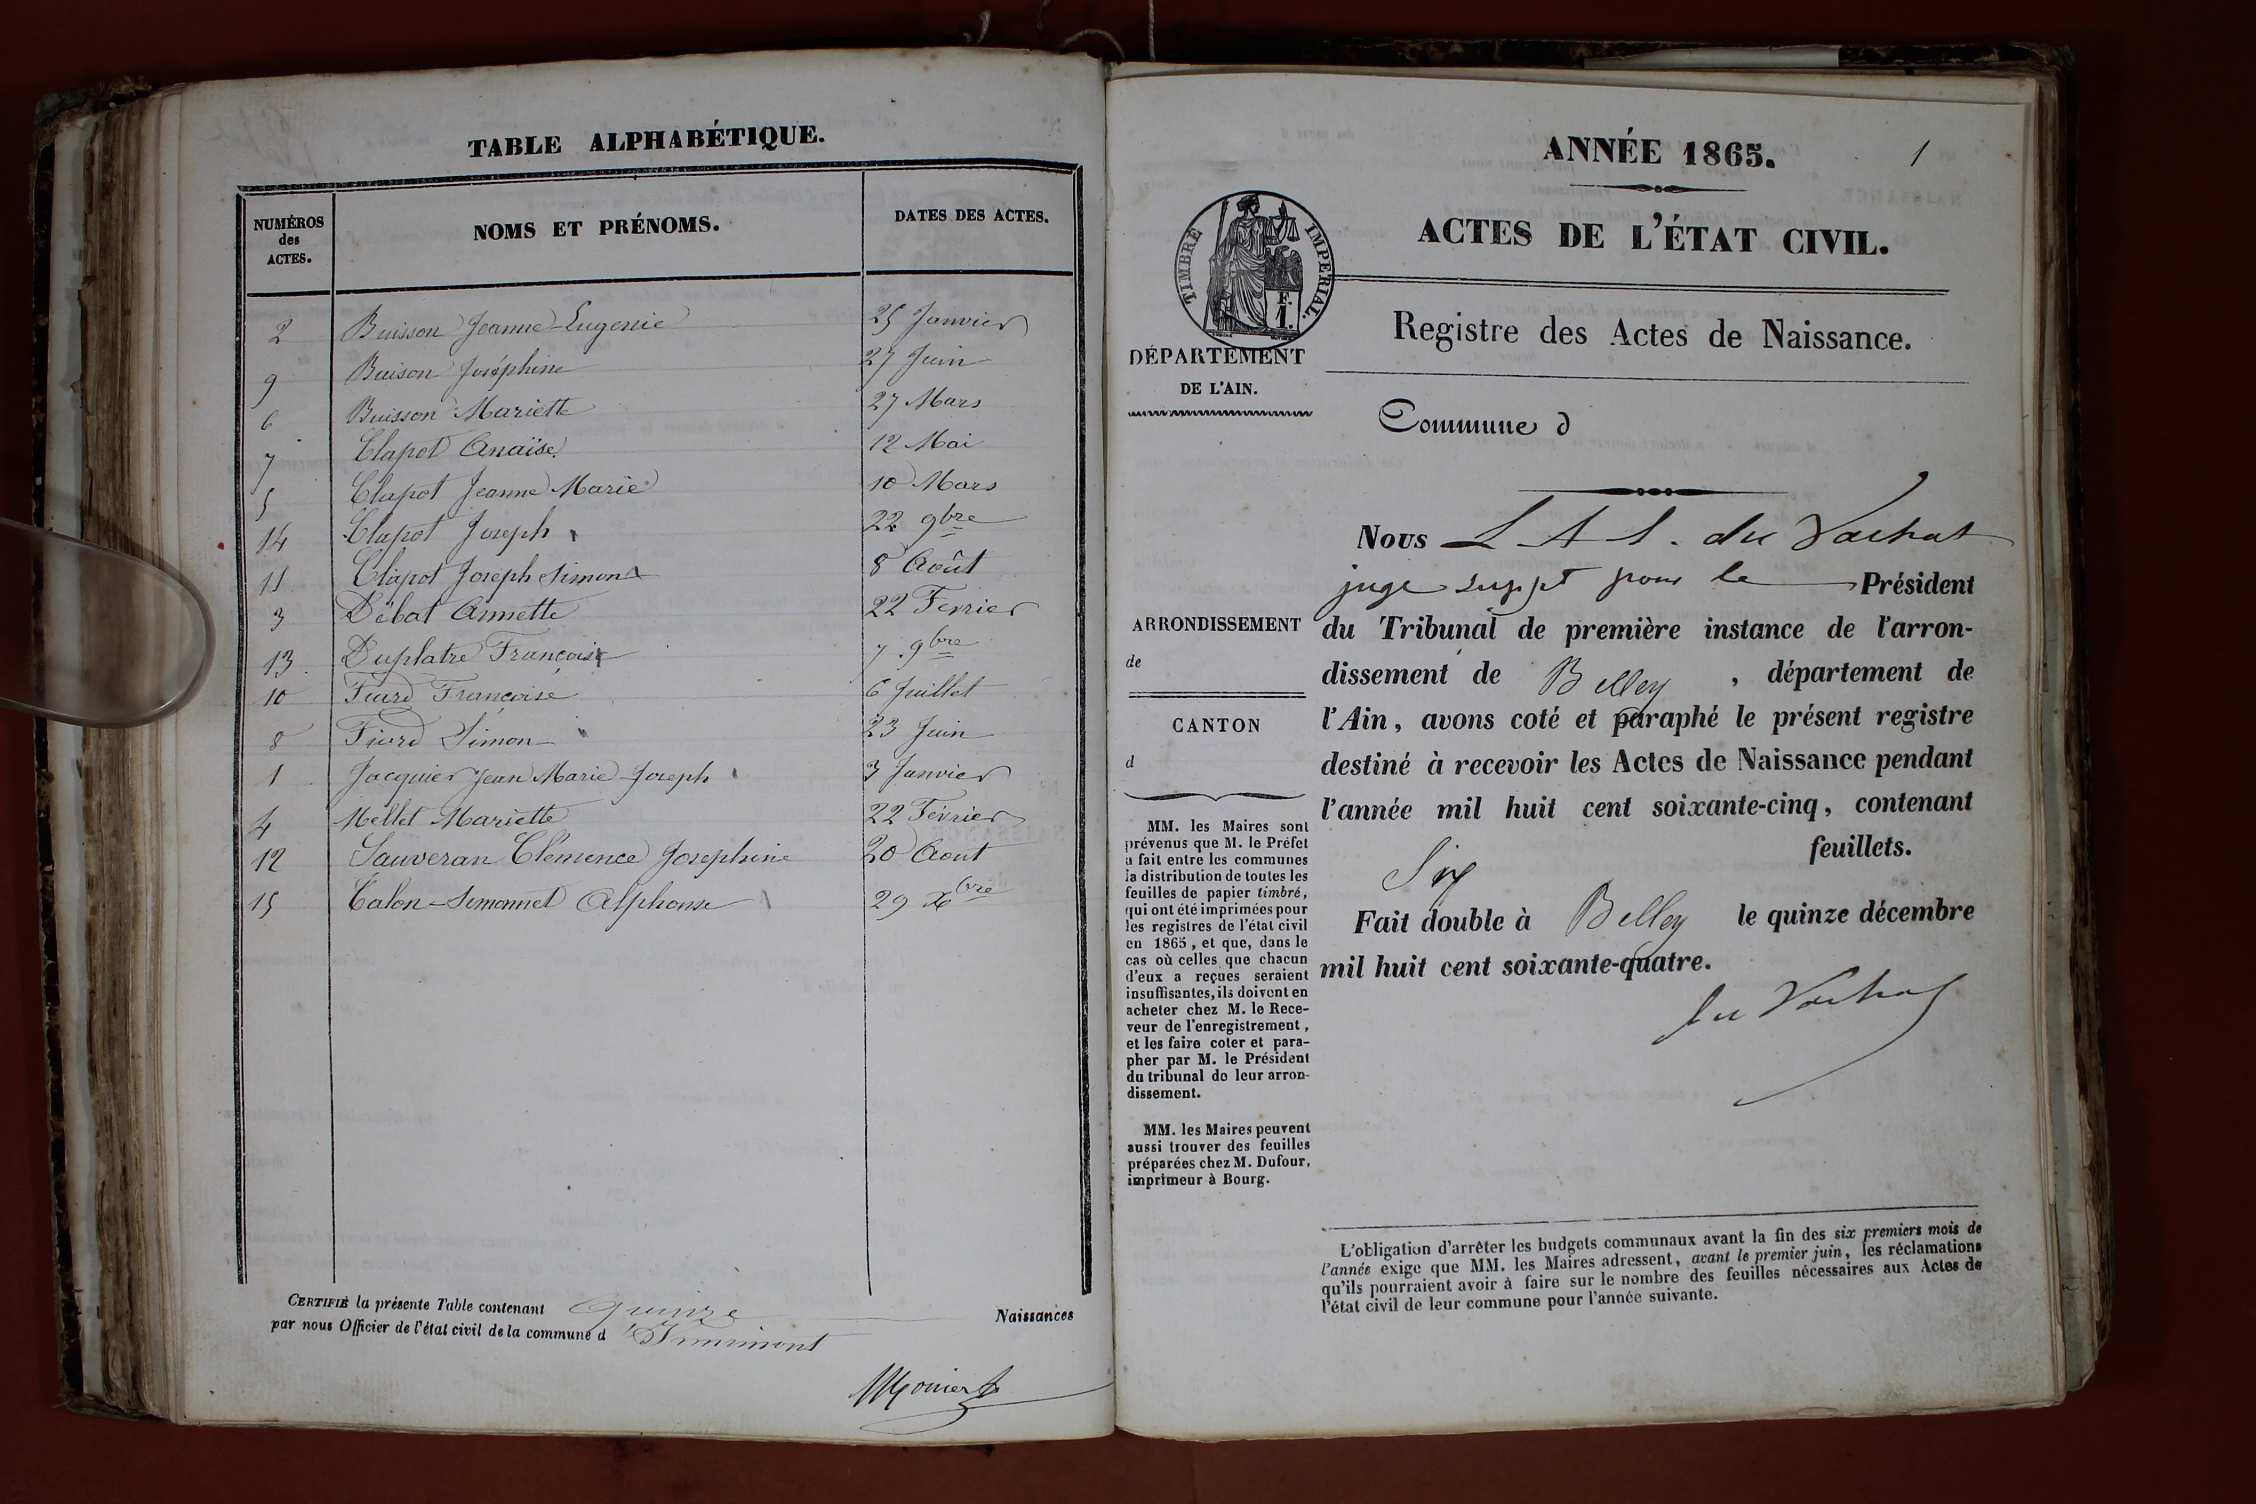 TABLE ALPHABÉTIQUE.
NUMÉROS des ACTES. NOMS ET PRÉNOMS. DATES DES ACTES.
2 Buisson Jeanne-Eugenie 25 Janvier
9 Buison Joséphine 27 Juin
6 Buisson Mariette 27 Mars
7 Clapot Anaïse 12 Mai
5 Clapot Jeanne Marie 10 Mars
14 Clapot Joseph 22 9bre
11 Clapot Joseph Simon 8 Août
3 Débat Annette 22 Fevrier
13 Duplatre François 7 9bre
10 Fiard Françoise 6 Juillet
8 Fiard Simon 23 Juin
1 Jacquier Jean Marie Joseph 3 Janvier
4 Mellet Mariette 22 Février
12 Sauveran Clémence Josephine 20 Aout
15 Talon-Simonnet Alphonse 29 Xbre
CERTIFIÉ la présente Table contenant Quinze Naissances
par nous Officier de l'état civil de la commune d'Innimont
ANNÉE 1865.
1
TIMBRE IMPERIAL.
F. 1.
ACTES DE L'ÉTAT CIVIL.
Registre des Actes de Naissance.
DÉPARTEMENT
DE L'AIN.
Commune d
Nous L A S. du Vachat
juge suppt pour le Président
ARRONDISSEMENT
de
du Tribunal de première instance de l'arron-
dissement de Belley, département de
l'Ain, avons coté et paraphé le présent registre
destiné à recevoir les Actes de Naissance pendant
l'année mil huit cent soixante-cinq, contenant
Six feuillets.
Fait double à Belley le quinze décembre
mil huit cent soixante-quatre.
du Vachat
CANTON
d
MM. les Maires sont
prévenus que M. le Préfet
a fait entre les communes
la distribution de toutes les
feuilles de papier timbré,
qui ont été imprimées pour
les registres de l'état civil
en 1865, et que, dans le
cas où celles que chacun
d'eux a reçues seraient
insuffisantes, ils doivent en
acheter chez M. le Rece-
veur de l'enregistrement,
et les faire coter et para-
pher par M. le Président
du tribunal de leur arron-
dissement.
MM. les Maires peuvent
aussi trouver des feuilles
préparées chez M. Dufour,
imprimeur à Bourg.
L'obligation d'arrêter les budgets communaux avant la fin des six premiers mois de
l'année exige que MM. les Maires adressent, avant le premier juin, les réclamations
qu'ils pourraient avoir à faire sur le nombre des feuilles nécessaires aux Actes de
l'état civil de leur commune pour l'année suivante.